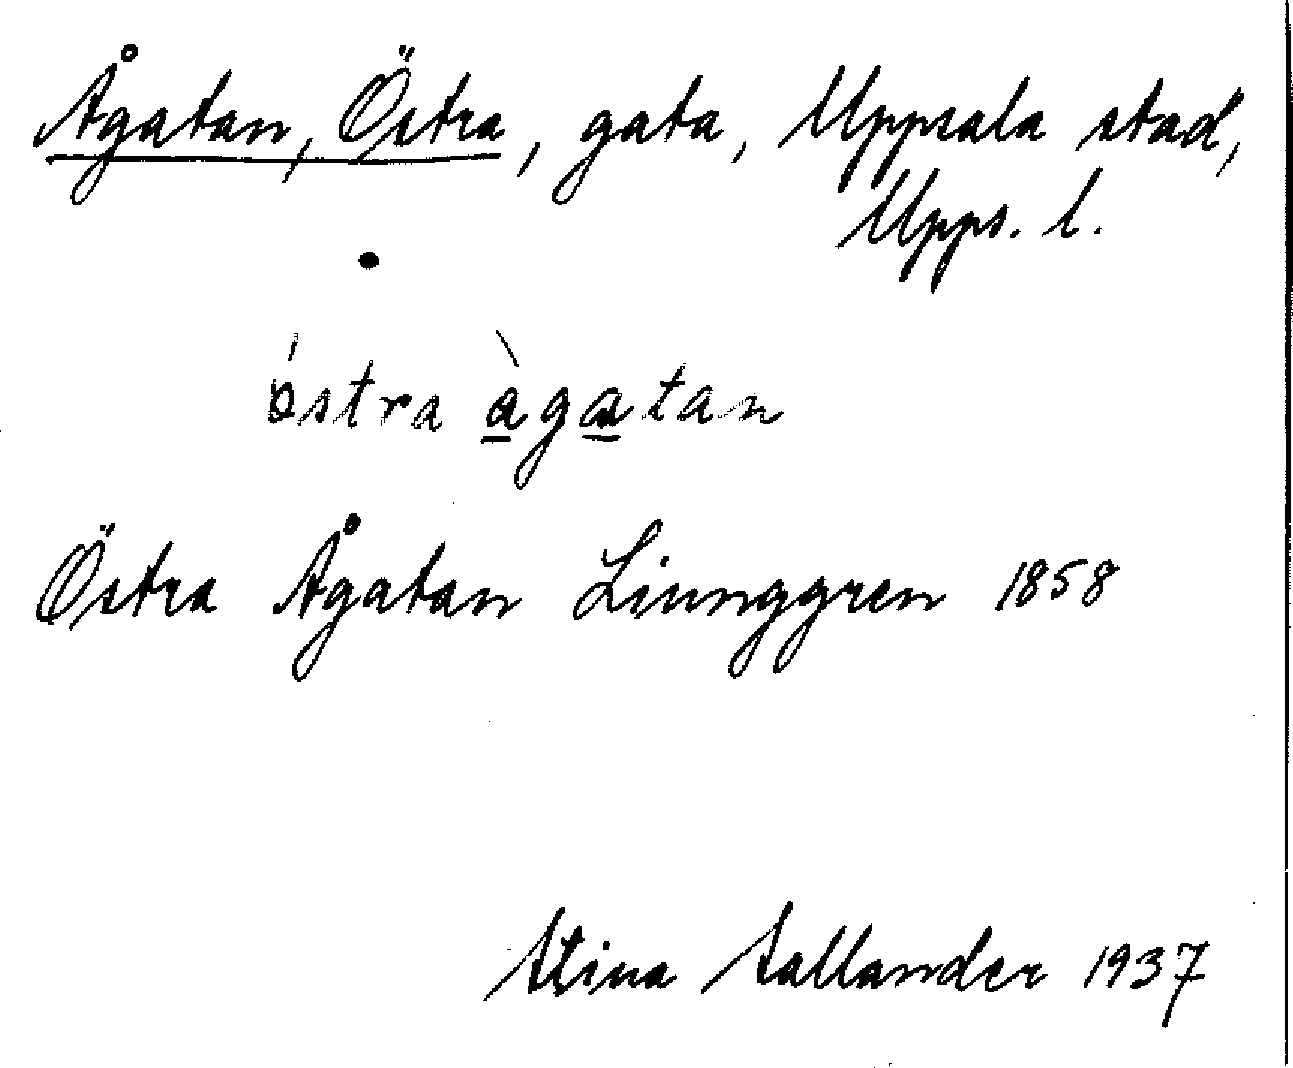 Ågatan, Östra, gata, Uppsala stad,
Upps. l.
östra ågatan
Östra Ågatan Liunggren 1858
Stina Sallander 1937